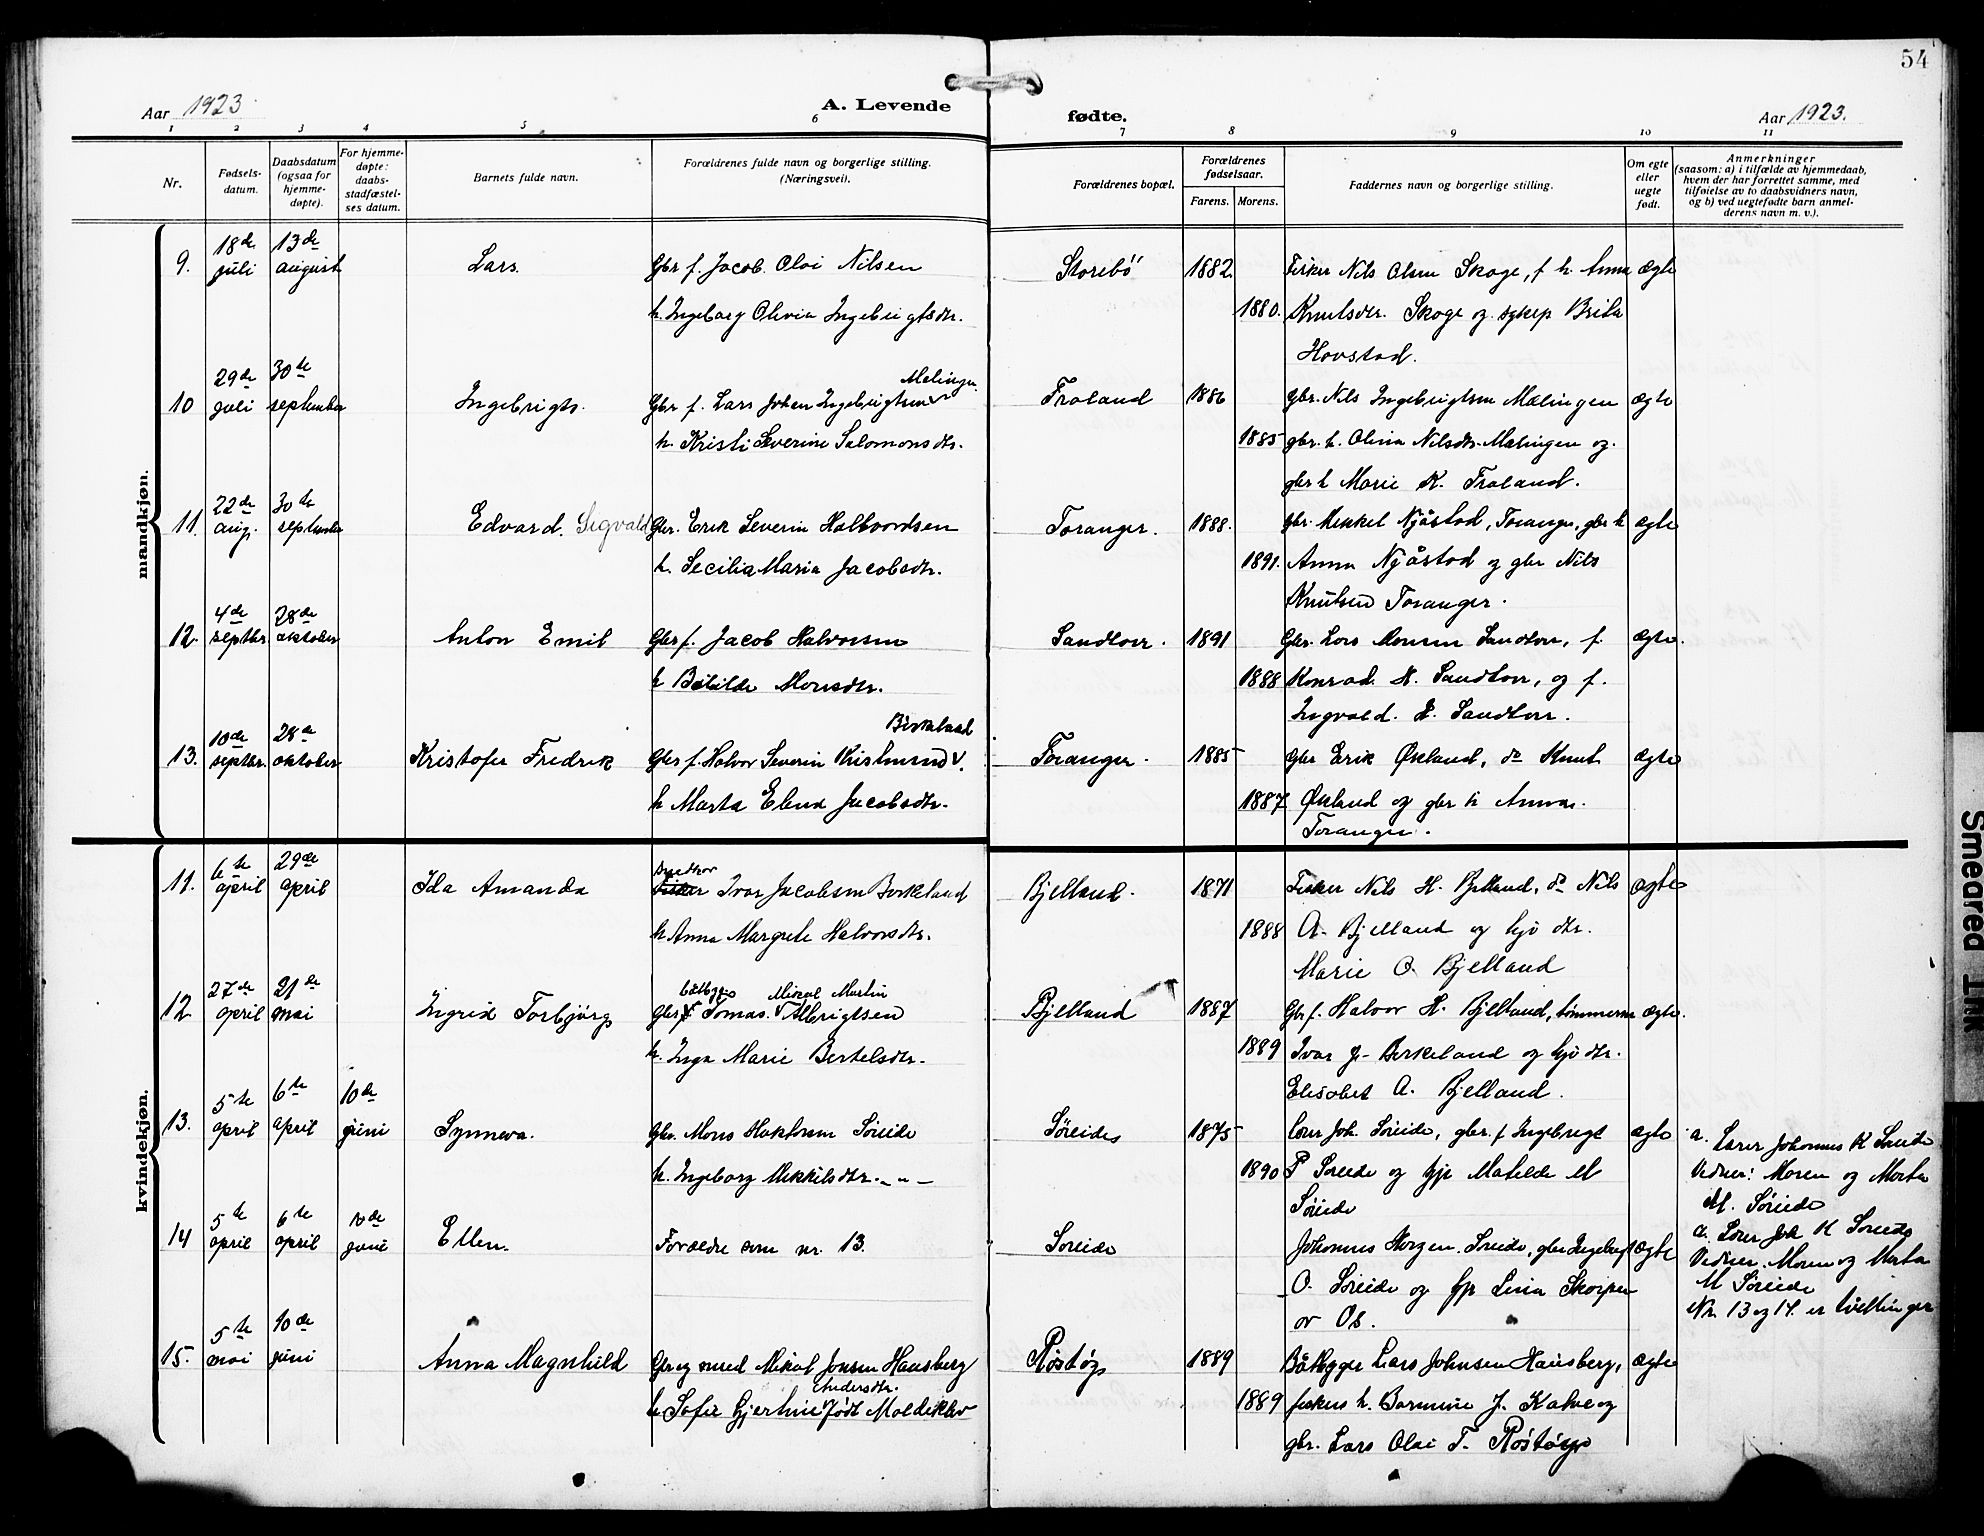 54
Aar 1923.
A. Levende
fødte.
Aar 1923.
1 2 3 4 5 6 7 8 9 10 11
Nr.
Fødsels-
datum.
Daabsdatum
(ogsaa for
hjemme-
døpte).
For hjemme-
døpte:
daabs-
stadfæstel-
ses datum.
Barnets fulde navn.
Forældrenes fulde navn og borgerlige stilling.
(Næringsvei).
Forældrenes bopæl.
Forældrenes
fødselsaar.
Farens. Morens.
Faddernes navn og borgerlige stilling.
Om egte
eller
uegte
født.
Anmerkninger
(saasom: a) i tilfælde av hjemmedaab,
hvem der har forrettet samme, med
tilføielse av to daabsvidners navn,
og b) ved uegtefødte barn anmel-
derens navn m. v.).
mandkjøn.
18de 13de
9. juli august Lars. Gbr f. Jacob Olai Nilsen Storebö 1882 Fisker Nils Olsen Skoge, f h. Anna ægte
h. Ingeborg Olivia Ingebrigtsdtr. 1880. Knutsdtr. Skoge og sykep Brita
Hovstad.
29de 30te Malingen
10 juli september Ingebrigt. Gbr f. Lars Johan Ingebrigtsen Froland 1886 gbr. Nils Ingebrigtsen Mælingen ægte
h. Kristi Severine Salomonsdtr. 1885 gbr. h. Olina Nilsdtr. Mælingen og
gbr h Marie K. Froland.
22de 30te
11. aug. september Edvard. Sigvald Gbr. Erik Severin Halvordsen Toranger. 1888. gbr. Mikkel Njåstad, Toranger, gbr h ægte
h. Secilia Maria Jacobsdtr. 1891. Anna Njåstad og gbr Nils
Knutsen Toranger.
4de 28de
12. septbr. oktober Anton Emil Gbr f. Jacob Halvorsen Sandtorv. 1891 Gbr. Lars Monsen Sandtorv, f. ægte.
h Botilde Monsdtr. 1888 Konrad H. Sandtorv, og f.
Ingvald. H. Sandtorv.
10de 28de Birkeland
13. septbr. oktober Kristofer Fredrik Gbr f. Halvor Severin Kristensen Toranger. 1885 Gbr Erik Økland, do Knut ægte
h Marta Elena Jacobsdtr. 1887 Økland og gbr h Anna
Toranger.
kvindekjøn.
6te 29de
11. april april Ida Amanda Ivar Jacobsen Birkeland Bjelland. 1871 Fisker Nils H. Bjelland, do Nils ægte
h Anna Margrete Halvorsdtr. 1888 A. Bjelland og hjv dtr.
Marie O. Bjelland
27de 21de båtbygger Mikal Martin
12 april mai Ingrid Torbjørg Gbr f Tomas Albrigtsen Bjelland 1887 Gbr f. Halvor H. Bjelland, tømmerm ægte.
h. Inga Marie Bertelsdtr. 1889 Ivar J. Birkeland og hjv dtr.
Elisabet A. Bjelland.
5te 6te 10de
13. april april juni Synneva. Gbr. Mons Søreide Søreide 1875 Lærer Joh. Søreide, gbr. f Ingebrigt ægte
h. Ingeborg Mikkelsdtr. - " - 1890 P Søreide og Matilde M
Søreide
a. Lærer Johannes K Søreide
Vidner: Moren og Marta
M. Søreide
5te 6te 10de
14 april april juni Ellen. Forældre som nr. 13. Søreide Johannes Søreide, gbr Ingebrigt ægte
O. Søreide og Lina
av Os.
a. Lærer Joh K Søreide
Vidner. Moren og Marta
M Søreide
Nr. 13 og 14 er tvillinger
5te 10de
15. mai juni Anna Magnhild Gbr og smed Mikal Jonsen Hausberg Røstøy 1889 Båtbygger Lars Johnsen Hausberg, ægte
Andersdtr.
h Sofie Gjertine født Moldeklev 1889 fiskers h. Barmine J. Kalve og
gbr. Lars Olai T. Røstøy
Smeared Ink